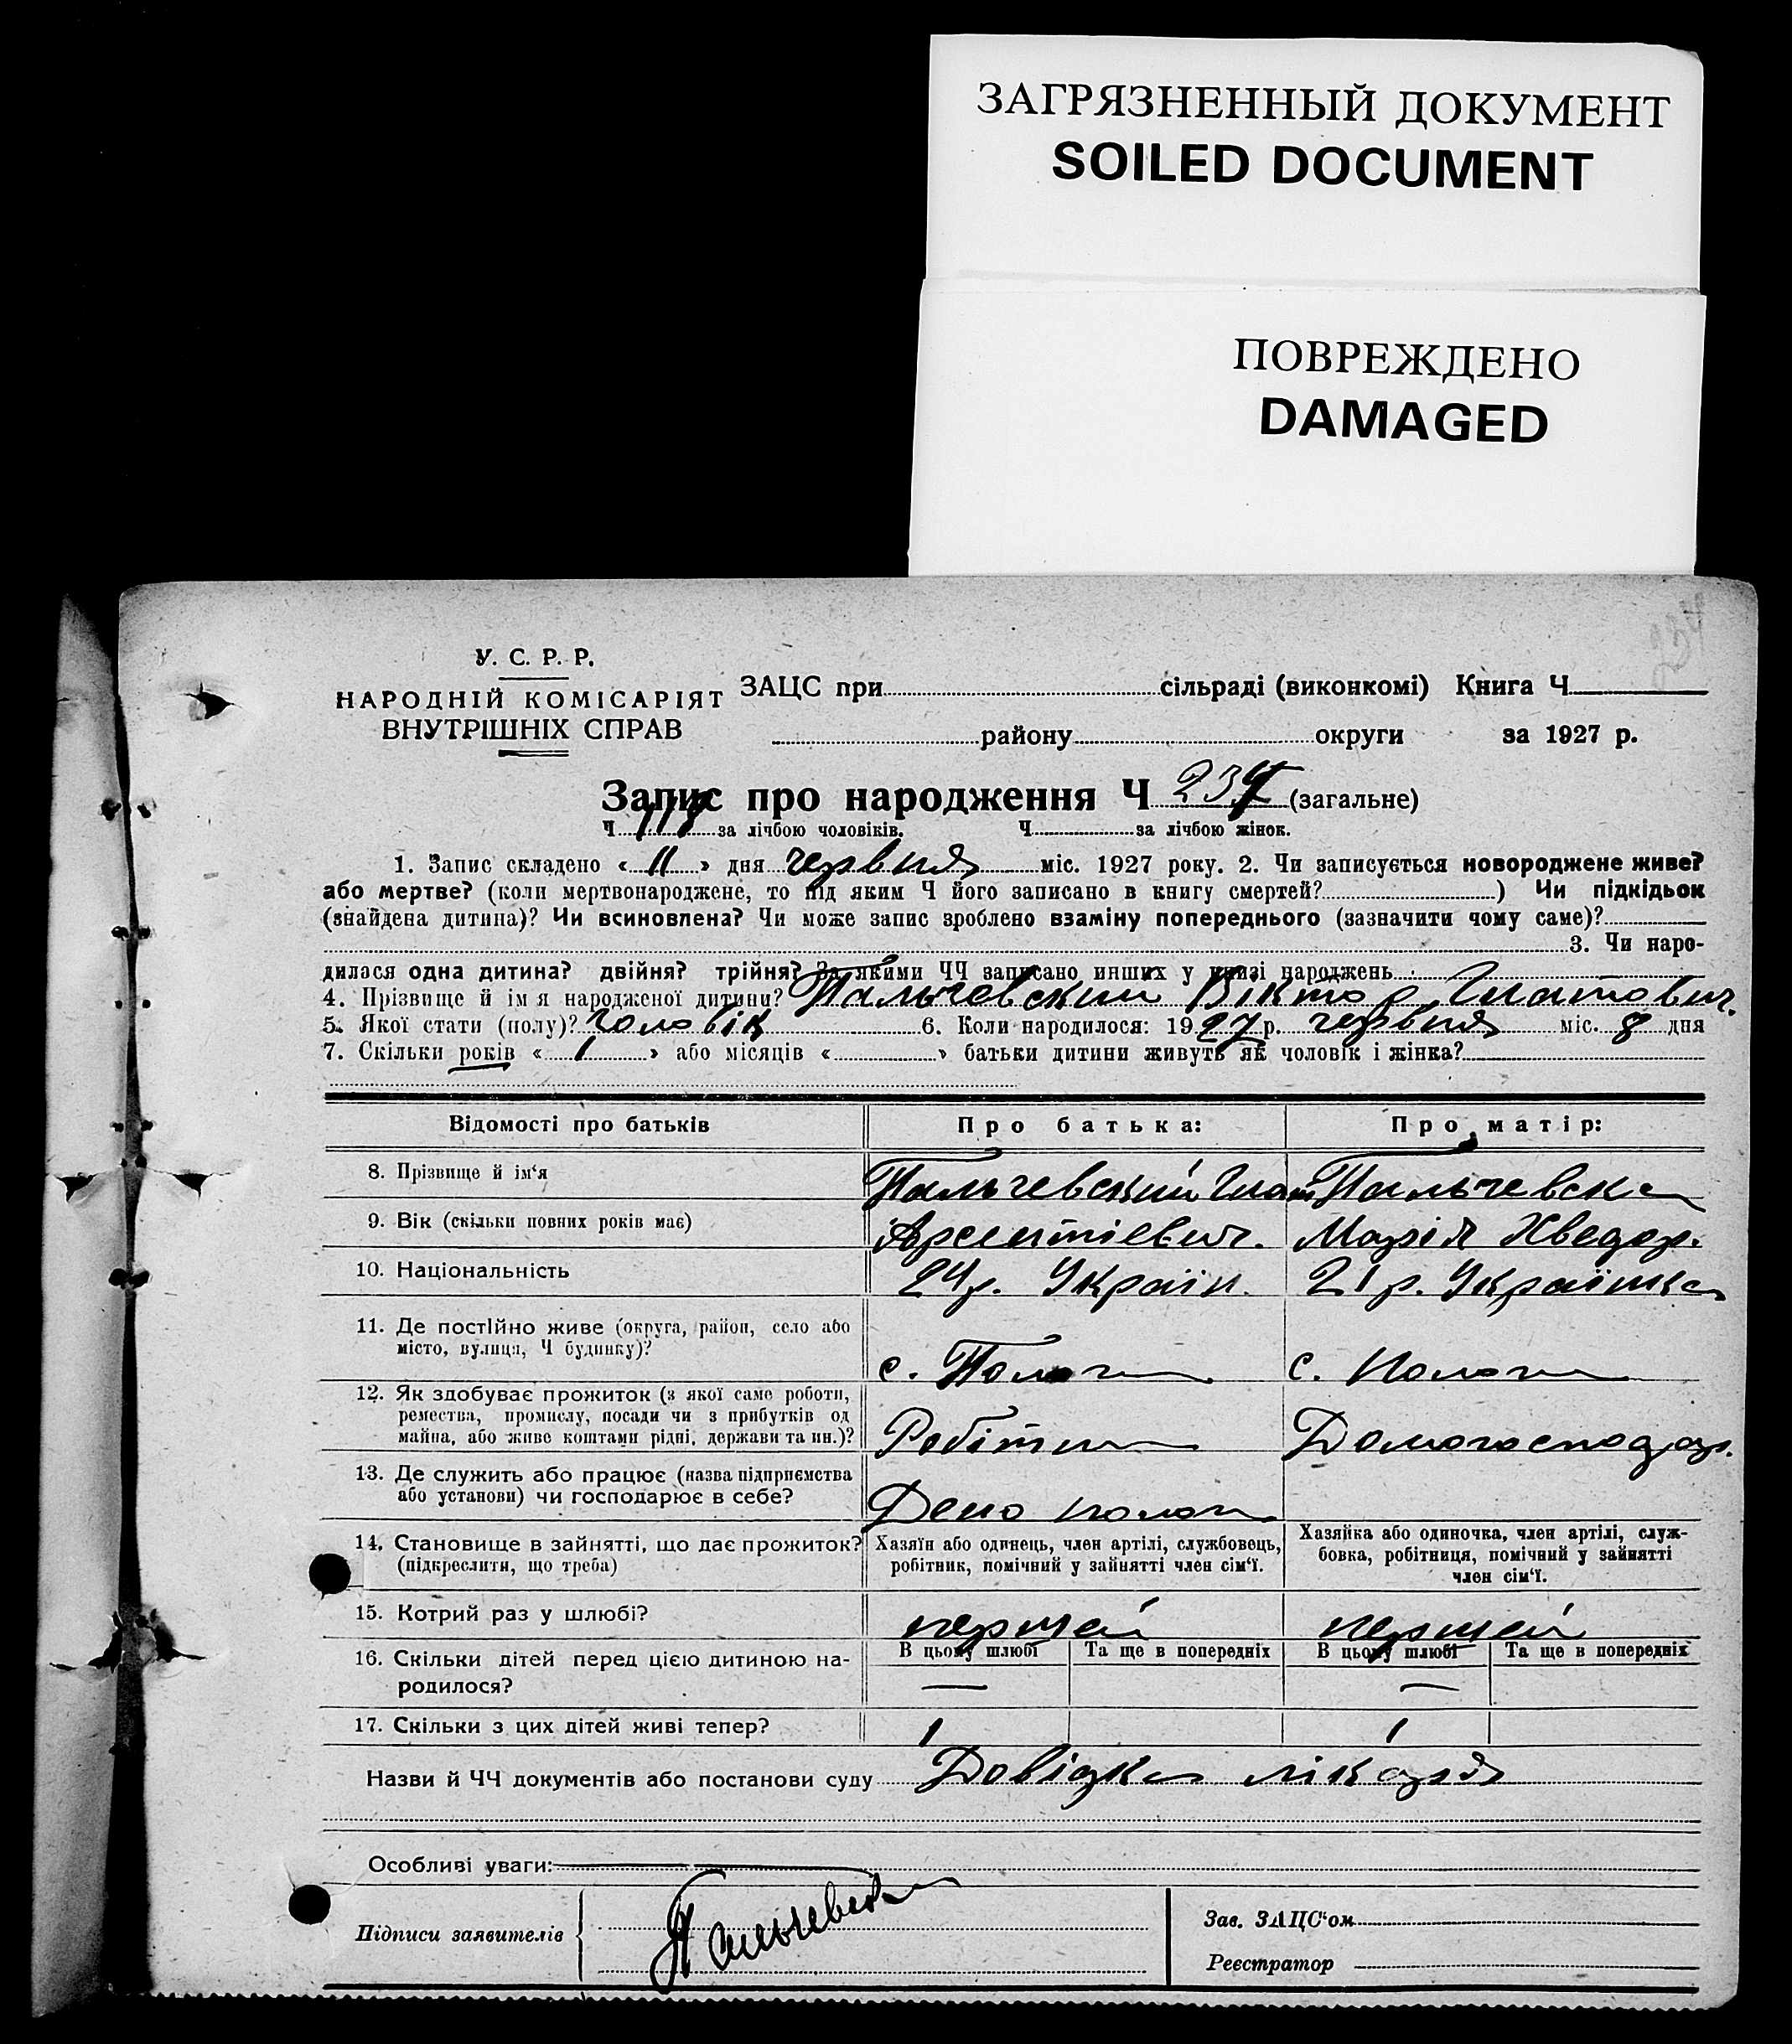 ЗАГРЯЗНЕННЫЙ ДОКУМЕНТ
SOILED DOCUMENT
ПОВРЕЖДЕНО
DAMAGED
234
У. С. Р. Р.
НАРОДНІЙ КОМІСАРІЯТ
ВНУТРІШНІХ СПРАВ
ЗАЦС при сільраді (виконкомі) Книга Ч
району округи за 1927 р.
Запис про народження Ч 234 (загальне)
Ч 118 за лічбою чоловіків. Ч за лічбою жінок.
1. Запис складено « 11 » дня червня міс. 1927 року. 2. Чи записується новороджене живе?
або мертве? (коли мертвонароджене, то під яким Ч його записано в книгу смертей? ) Чи підкідьок
(знайдена дитина)? Чи всиновлена? Чи може запис зроблено взаміну попереднього (зазначити чому саме)?
3. Чи наро-
дилася одна дитина? двійня? трійня? За якими ЧЧ записано инших у книзі народжень
4. Прізвище й ім я народженої дитини? Пальчевский Віктор Гнатович.
5. Якої стати (полу)? чоловік 6. Коли народилося: 1927 р. червня міс. 8 дня
7. Скільки років « 1 » або місяців « » батьки дитини живуть як чоловік і жінка?
Відомості про батьків Про батька: Про матір:
8. Прізвище й ім'я Пальчевский Гнат Пальчевска
9. Вік (скільки повних років має) Арсентіевич. Марія Хведор.
10. Національність 24 р. Україн. 21 р. Українка
11. Де постійно живе (округа, район, село або
місто, вулиця, Ч будинку)? с. Пологи с. Пологи
12. Як здобуває прожиток (з якої саме роботи,
ремества, промислу, посади чи з прибутків од
майна, або живе коштами рідні, держави та ин.)? Робітни Домогосподар.
13. Де служить або працює (назва підприємства
або установи) чи господарює в себе? Депо пологи
14. Становище в зайнятті, що дає прожиток?
(підкреслити, що треба)
Хазяїн або одинець, член артілі, службовець,
робітник, помічний у зайнятті член сім'ї.
Хазяйка або одиночка, член артілі, служ-
бовка, робітниця, помічний у зайнятті
член сім'ї.
15. Котрий раз у шлюбі? перший перший
16. Скільки дітей перед цією дитиною на-
родилося?
В цьому шлюбі Та ще в попередніх В цьому шлюбі Та ще в попередніх
— —
17. Скільки з цих дітей живі тепер? 1 1
Назви й ЧЧ документів або постанови суду Довідка лікаря
Особливі уваги:
Підписи заявителів Пальчевский
Зав. ЗАЦС'ом
Реєстратор